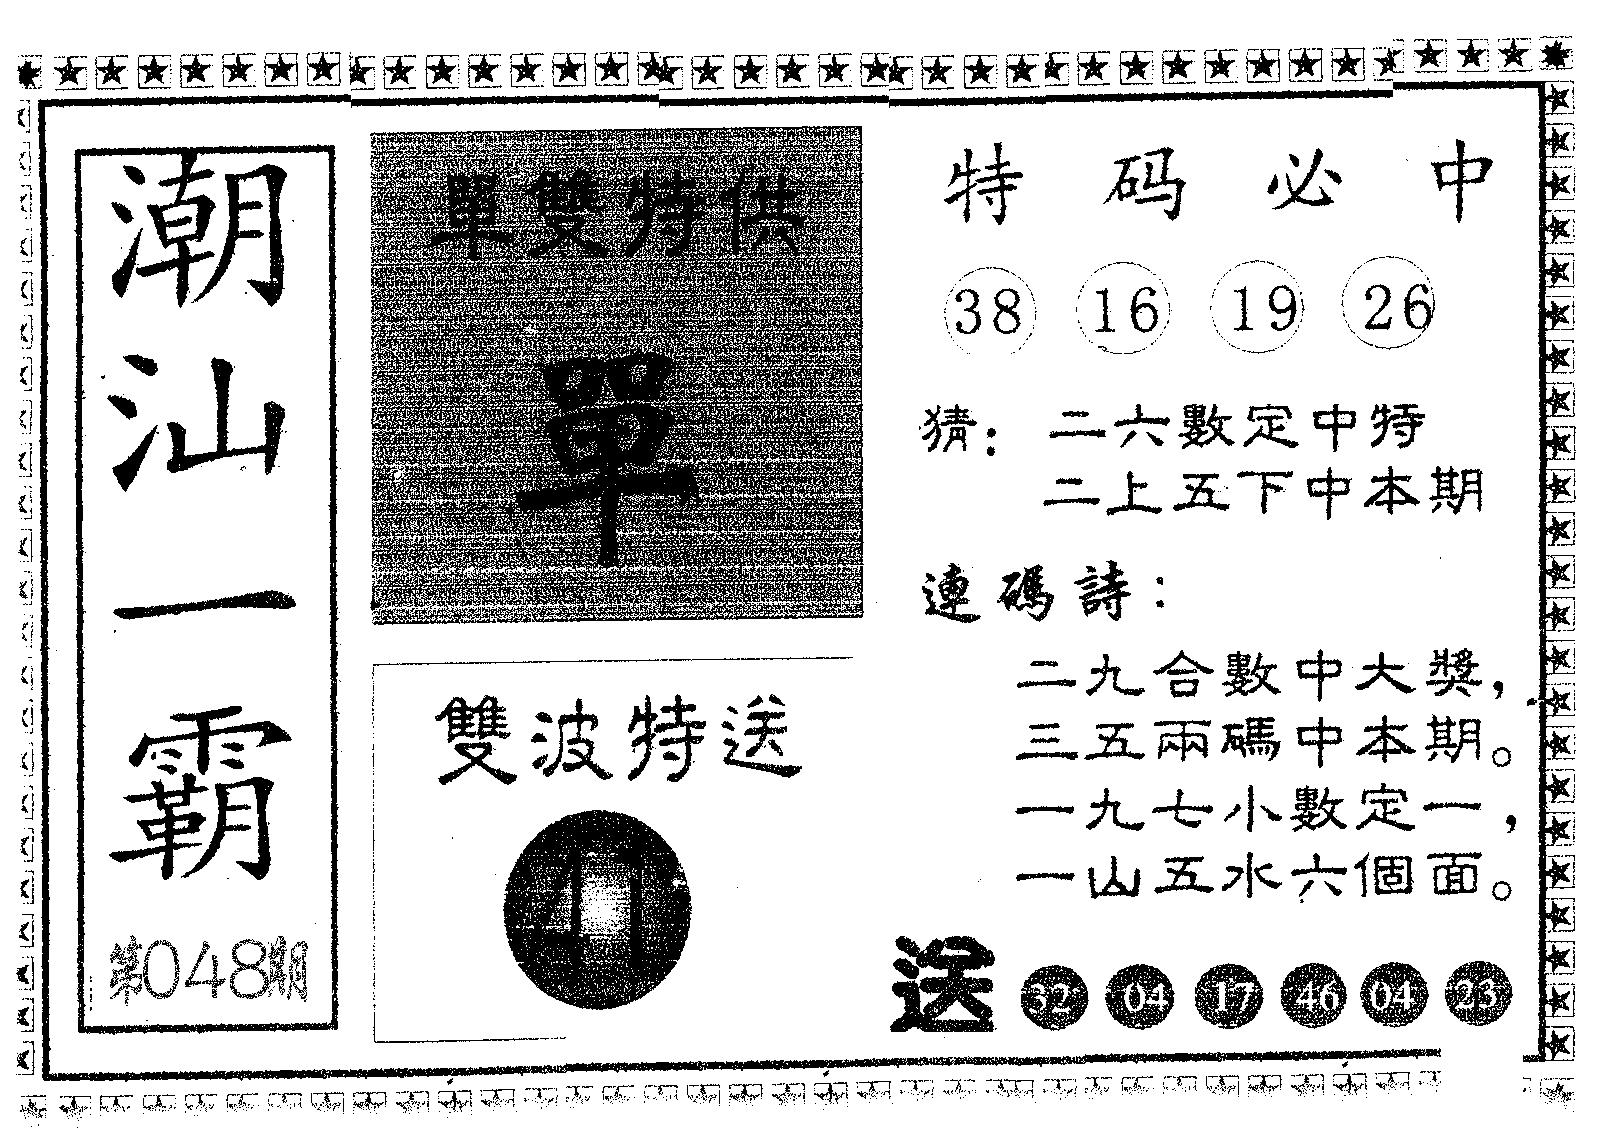 潮汕一霸
第048期
單雙特供
單
雙波特送
41
特码必中
38 16 19 26
猜：二六數定中特
二上五下中本期
連碼詩：
二九合數中大獎，
三五兩碼中本期。
一九七小數定一，
一山五水六個面。
送 32 04 17 46 04 23